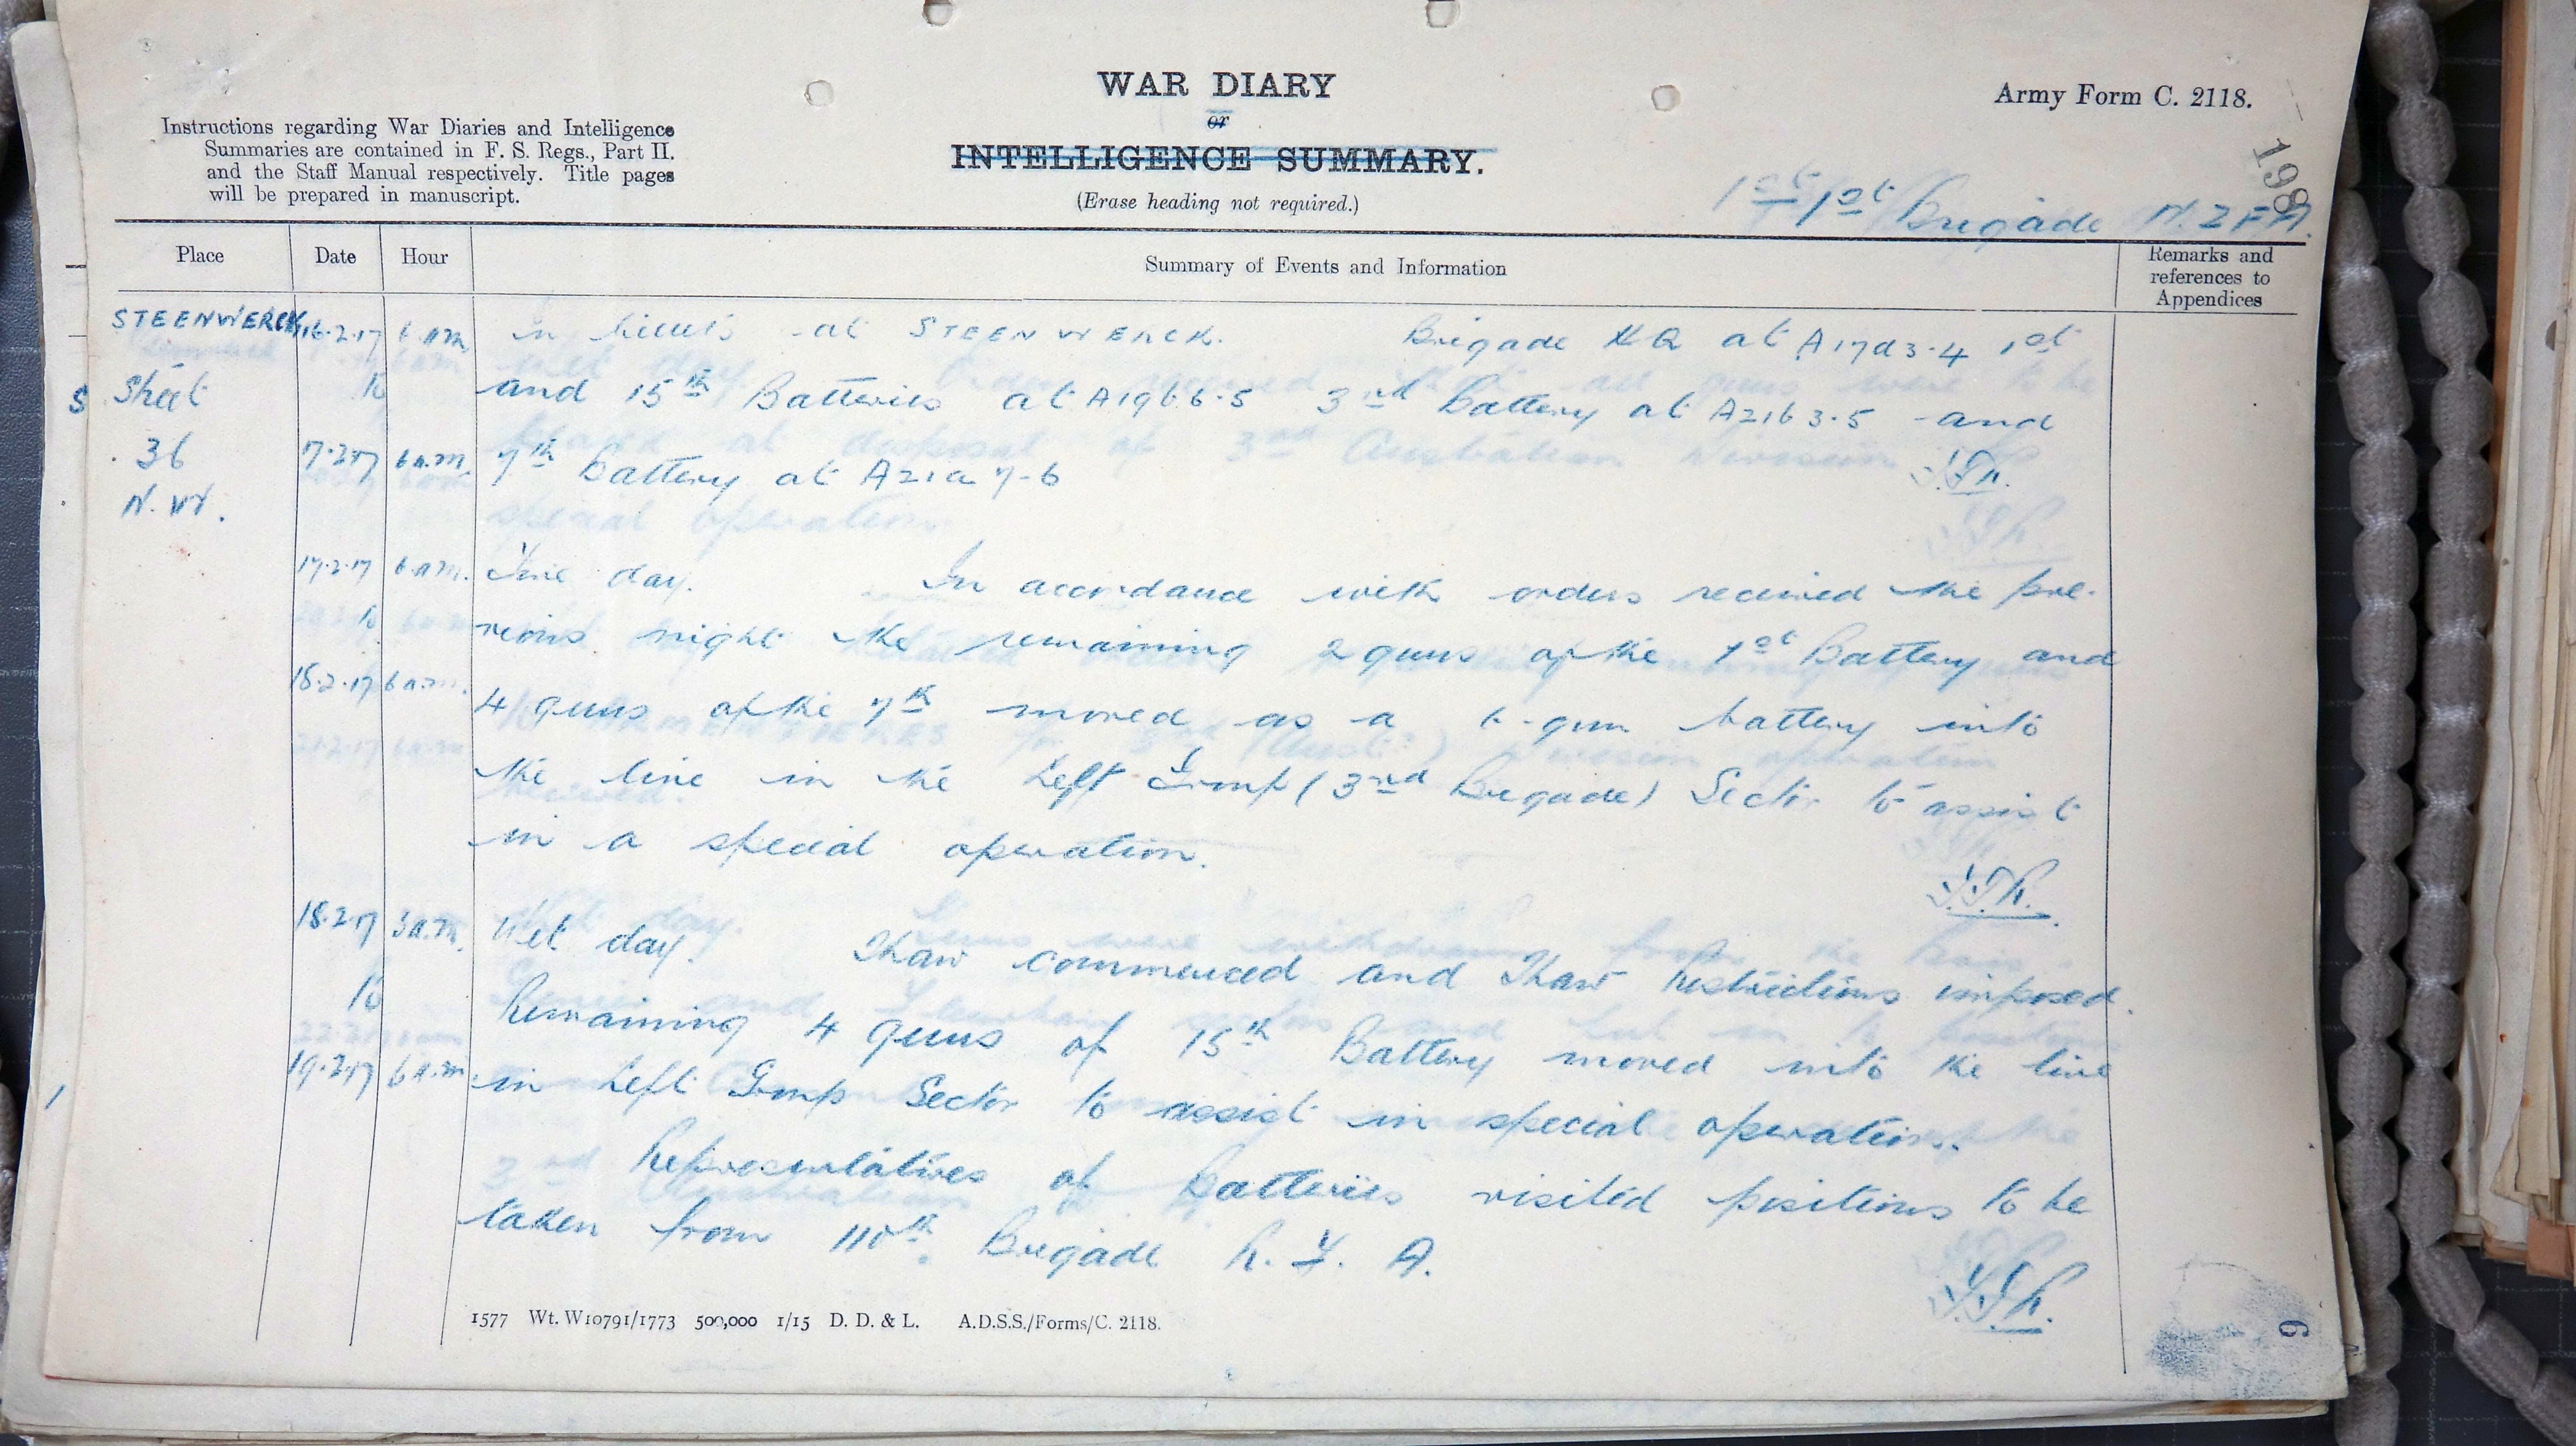 WAR DIARY
or
INTELLIGENCE SUMMARY.
(Erase heading not required.)
Army Form C. 2118.
198
Instructions regarding War Diaries and Intelligence
Summaries are contained in F. S. Regs., Part II.
and the Staff Manual respectively. Title pages
will be prepared in manuscript.
1st 1st Brigade N.Z.F.A.
Place Date Hour Summary of Events and Information Remarks and
references to
Appendices
STEENWERCK 16.2.17 6 a.m. in billets at STEENWERCK. Brigade HQ at A17d3.4 1st
Sheet to and 15th Batteries at A19b6.5 3rd Battery at A21b3.5 and
36 17.2.17 6 a.m. 7th Battery at A21a7.6
N.W.
17.2.17 6 a.m. Fine day. In accordance with orders received the pre-
to vious night the remaining 2 guns of the 1st Battery and
18.2.17 6 a.m. 4 guns of the 7th moved as a 6-gun battery into
the line in the Left Group (3rd Brigade) Sector to assist
in a special operation.
18.2.17 Wet day. Thaw commenced and Thaw Restrictions imposed.
to Remaining 4 guns of 15th Battery moved into the line
19.2.17 6 a.m. in Left Group Sector to assist in special operation.
Representatives of Batteries visited positions to be
taken from 110th Brigade R. F. A.
1577 Wt. W10791/1773 500,000 1/15 D. D. & L. A.D.S.S./Forms/C. 2118.
9